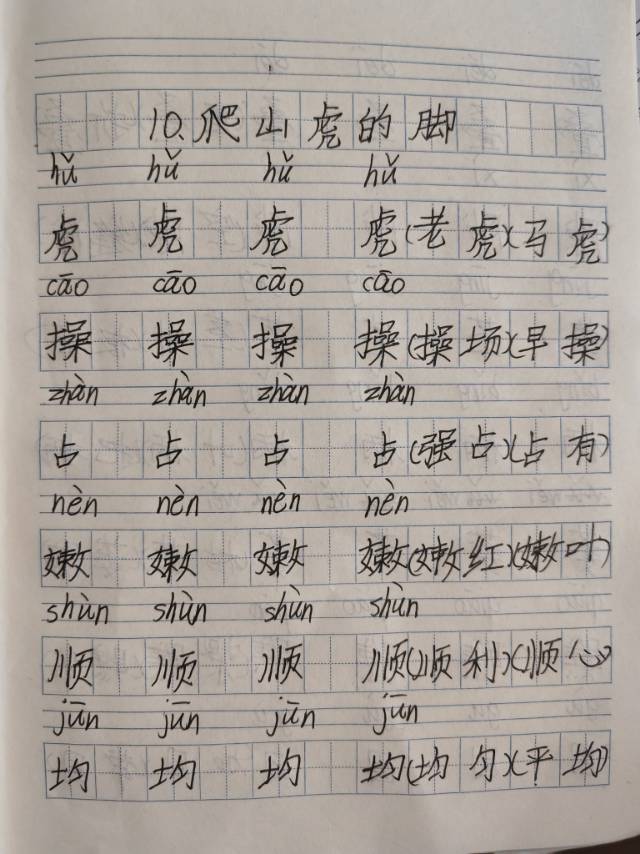 10.爬山虎的脚
hǔ hǔ hǔ hǔ
虎 虎 虎 虎(老虎)(马虎)
cāo cāo cāo cāo
操 操 操 操(操场)(早操)
zhàn zhàn zhàn zhàn
占 占 占 占(强占)(占有)
nèn nèn nèn nèn
嫩 嫩 嫩 嫩(嫩红)(嫩叶)
shùn shùn shùn shùn
顺 顺 顺 顺(顺利)(顺心)
jūn jūn jūn jūn
均 均 均 均(均匀)(平均)